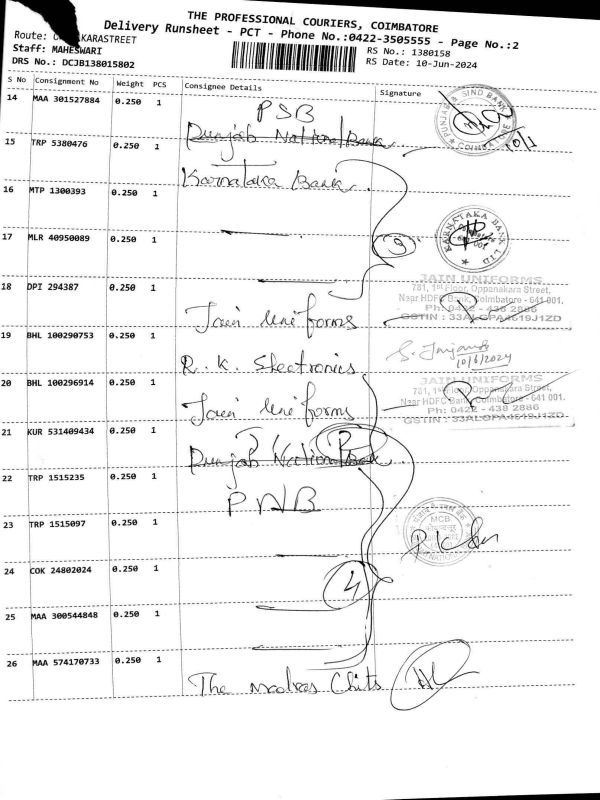 THE PROFESSIONAL COURIERS, COIMBATORE
Delivery Runsheet - PCT - Phone No.:0422-3505555 - Page No.:2
Route: KARASTREET
Staff: MAHESWARI
DRS No.: DCJB138015802
RS No.: 1380158
RS Date: 10-Jun-2024
S No Consignment No Weight PCS Consignee Details Signature
14 MAA 301527884 0.250 1 PSB
Punjab National Bank
PUNJAB & SIND BANK
10/1
15 TRP 5380476 0.250 1 Karnataka Bank
16 MTP 1300393 0.250 1
17 MLR 40950089 0.250 1 3
KARNATAKA BANK LTD
18 DPI 294387 0.250 1 Jain Uniforms
JAIN UNIFORMS
781, 1st Floor, Oppanakara Street,
Near HDFC Bank, Coimbatore - 641 001.
Ph: 0422 - 438 2886
GSTIN : 33ALGPA4619J1ZD
19 BHL 100290753 0.250 1 R. K. Electronics
10/6/2024
20 BHL 100296914 0.250 1 Jain Uniforms
JAIN UNIFORMS
781, 1st Floor, Oppanakara Street,
Near HDFC Bank, Coimbatore - 641 001.
Ph: 0422 - 438 2886
GSTIN : 33ALGPA4619J1ZD
21 KUR 531409434 0.250 1 Punjab National Bank
22 TRP 1515235 0.250 1 PNB
23 TRP 1515097 0.250 1
MCB
24 COK 24802024 0.250 1 4
25 MAA 300544848 0.250 1
26 MAA 574170733 0.250 1 The Madras Chits